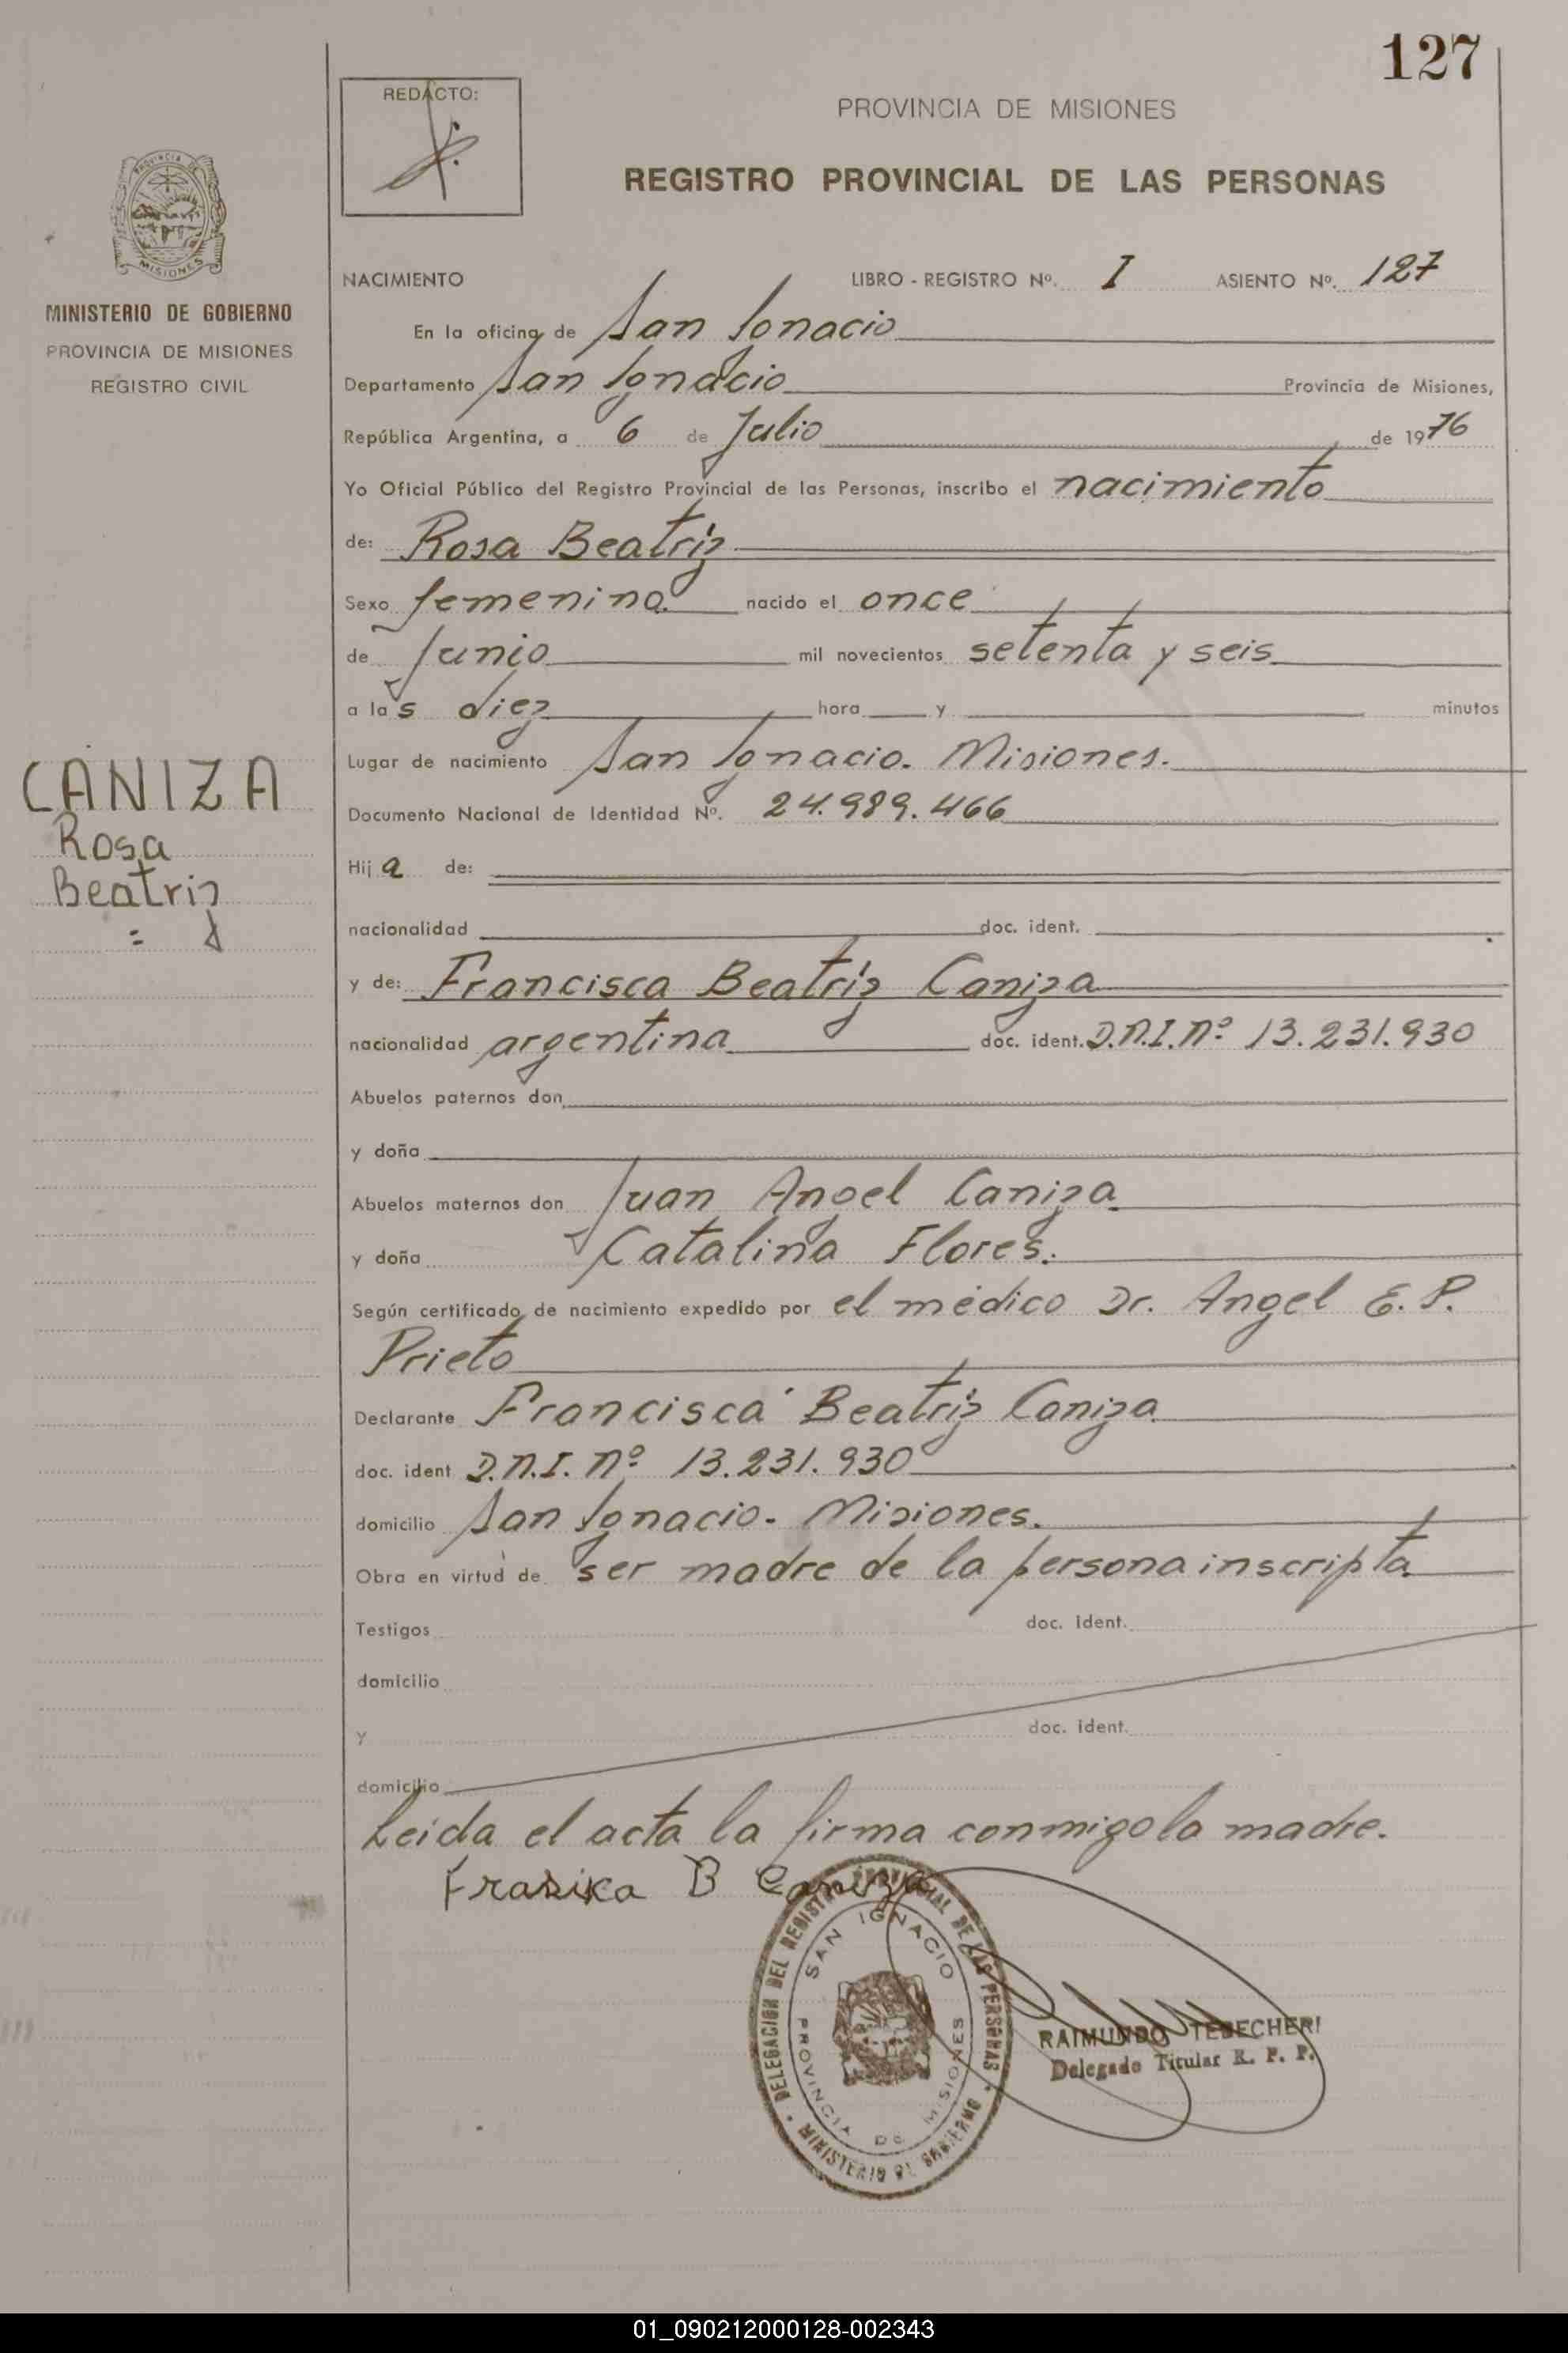 127
REDACTO:
PROVINCIA DE MISIONES
REGISTRO PROVINCIAL DE LAS PERSONAS
MINISTERIO DE GOBIERNO
PROVINCIA DE MISIONES
REGISTRO CIVIL
CANIZA
Rosa
Beatriz
NACIMIENTO LIBRO - REGISTRO Nº. I ASIENTO Nº. 127
En la oficina de San Ignacio
Departamento San Ignacio Provincia de Misiones,
República Argentina, a 6 de Julio de 1976
Yo Oficial Público del Registro Provincial de las Personas, inscribo el nacimiento
de: Rosa Beatríz
Sexo femenino. nacido el once
de Junio mil novecientos setenta y seis
a las diez hora y minutos
Lugar de nacimiento San Ignacio. Misiones.
Documento Nacional de Identidad Nº. 24.989.466
Hija de:
nacionalidad doc. ident.
y de: Francisca Beatríz Caniza
nacionalidad argentina doc. ident. D.N.I. Nº 13.231.930
Abuelos paternos don
y doña
Abuelos maternos don Juan Angel Caniza
y doña Catalina Flores.
Según certificado de nacimiento expedido por el médico Dr. Angel E. P.
Prieto
Declarante Francisca Beatríz Caniza
doc. ident D.N.I. Nº 13.231.930
domicilio San Ignacio. Misiones.
Obra en virtud de ser madre de la persona inscripta.
Testigos doc. ident.
domicilio
y doc. ident.
domicilio
Leida el acta la firma conmigo la madre.
B Caniza
DELEGACION DEL REGISTRO PROVINCIAL DE LAS PERSONAS
SAN IGNACIO
PROVINCIA DE MISIONES
MINISTERIO DE GOBIERNO
RAIMUNDO TEBECHERI
Delegado Titular R. P. P.
01_090212000128-002343